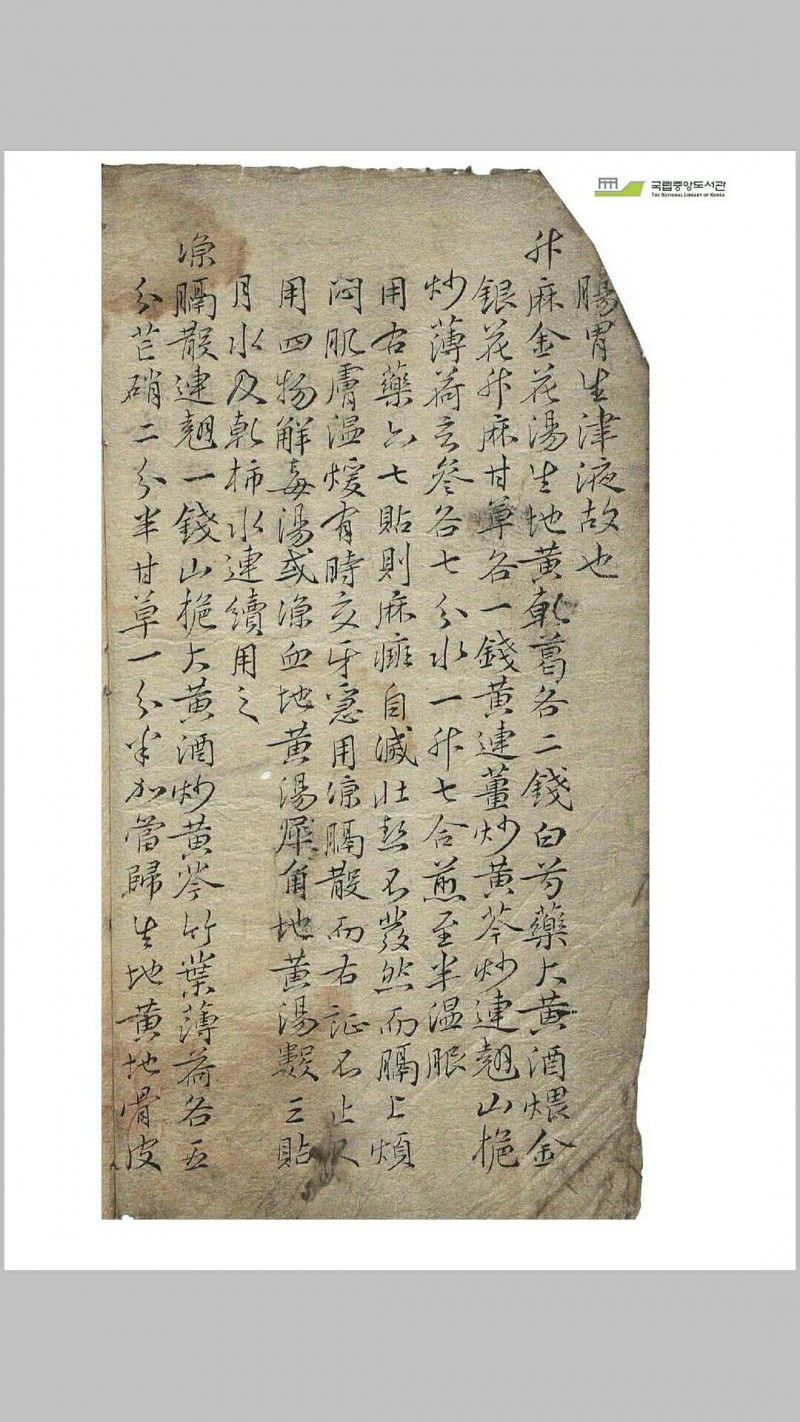 국립중앙도서관
THE NATIONAL LIBRARY OF KOREA
腸胃生津液故也
升麻金花湯生地黃乾葛各二錢白芍藥大黃酒煨金
銀花升麻甘草各一錢黃連薑炒黃芩炒連翹山梔
炒薄荷玄參各七分水一升七合煎至半溫服
用右藥六七貼則麻痘自減壯熱不發然而膈上煩
悶肌膚溫煖有時交牙急用凉膈散而右証不止又
用四物解毒湯或凉血地黃湯犀角地黃湯數三貼
月水及乾柿水連續用之
凉膈散連翹一錢山梔大黃酒炒黃芩竹葉薄荷各五
分芒硝二分半甘草一分半加當歸生地黃地骨皮